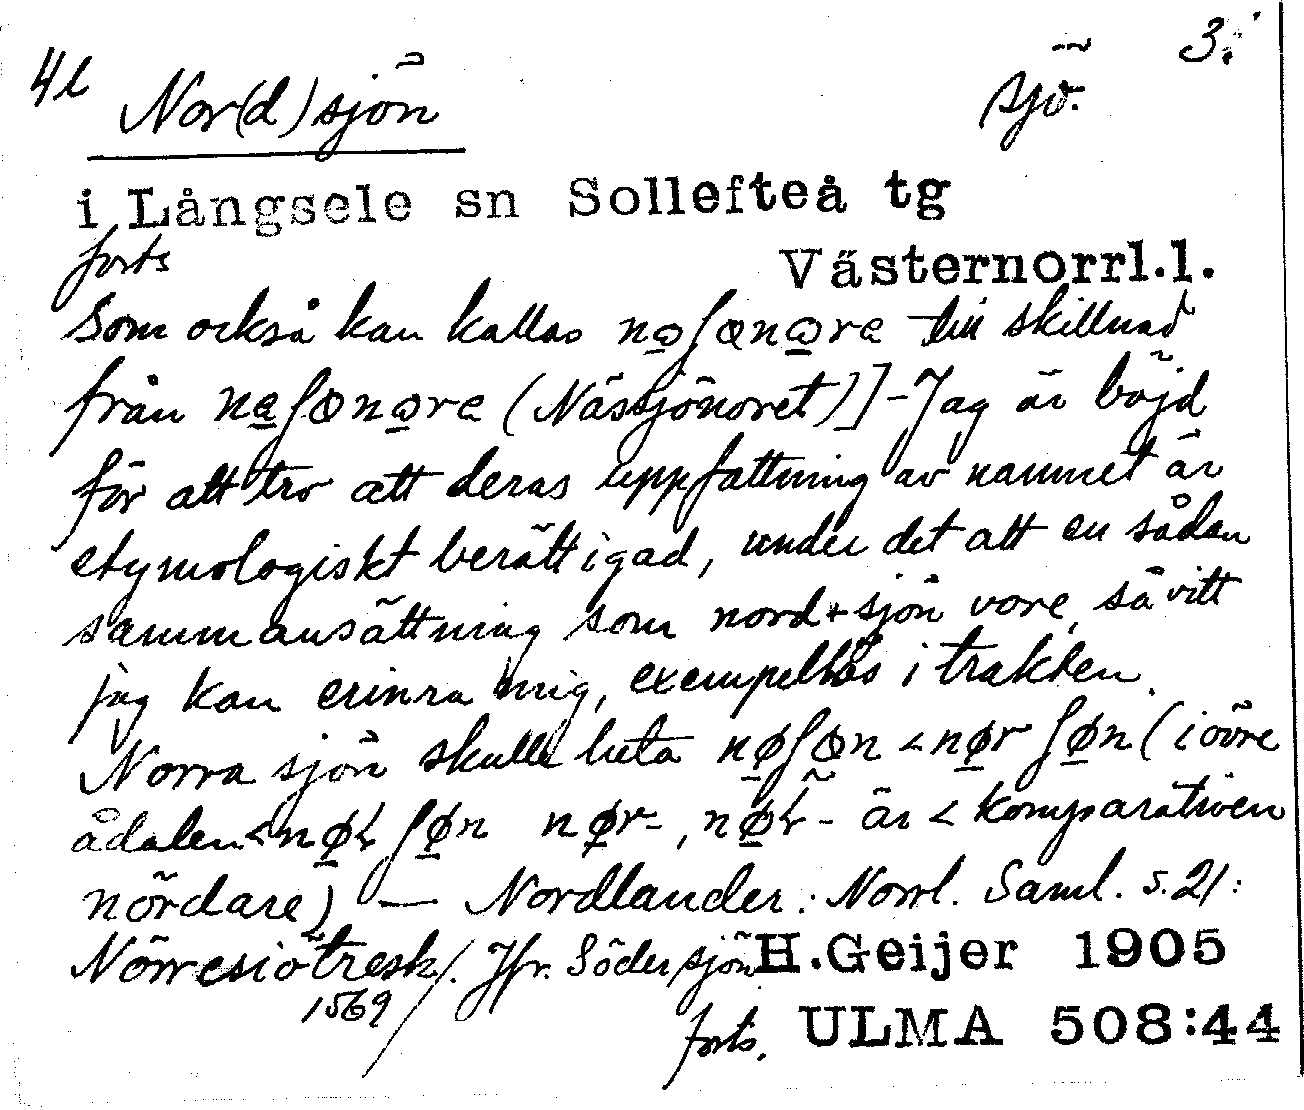 4l Nor(d)sjön sjö. 3.
i Långsele sn Sollefteå tg
forts Västernorrl.l.
Som också kan kallas nɷʃɷnɷre till skillnad
från neʃɷnɷre (Nässjönoret)] - Jag är böjd
för att tro att deras uppfattning av namnet är
etymologiskt berättigad, under det att en sådan
sammansättning som nord + sjön vore, så vitt
jag kan erinra mig, exempellös i trakten.
Norra sjön skulle heta nøʃɷn < nør ʃøn (i övre
ådalen < nøɽ ʃøn nør-, nøɽ - är < komparativen
nördare) — Nordlander: Norrl. Saml. s. 21:
Nörresiötresk/. Jfr. Södersjön H.Geijer 1905
1569
forts. ULMA 508:44